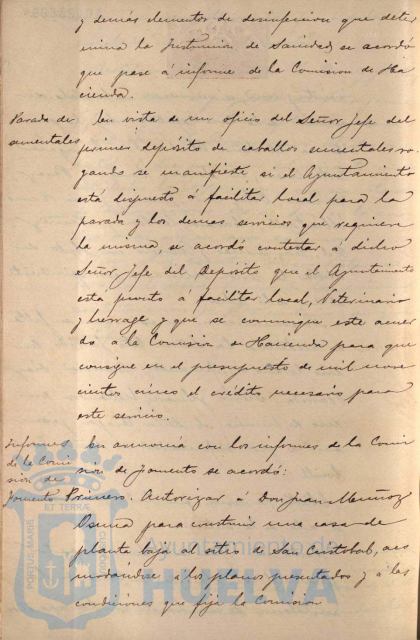 y demás elementos de desinfeccion que deter
mina la Instruccion de Sanidad, se acordó
que pase á informe de la Comision de Ha
cienda.
Parada de
sementales
En vista de un oficio del Señor Jefe del
primer depósito de caballos sementales ro
gando se manifieste si el Ayuntamiento
está dispuesto á facilitar local para la
parada y los demas servicios que requiere
la misma, se acordó contestar á dicho
Señor Jefe del Depósito que el Ayuntamiento
está pronto á facilitar local, Veterinario
y herrage y que se comunique este acuer
do á la Comision de Hacienda para que
consigne en el presupuesto de mil nove
cientos cinco el crédito necesario para
este servicio.
Informes
de la Comi
sión de
Fomento
En armonía con los informes de la Comi
sión de Fomento se acordó:
Primero. Autorizar á Don Juan Muñoz
Osuna para construir una casa de
planta baja al sitio de San Cristobal, aco
modándose á los planos presentados y á las
condiciones que fija la Comision
PORTUS MARIS
ET TERRÆ
CUSTODIA
Ayuntamiento de
HUELVA